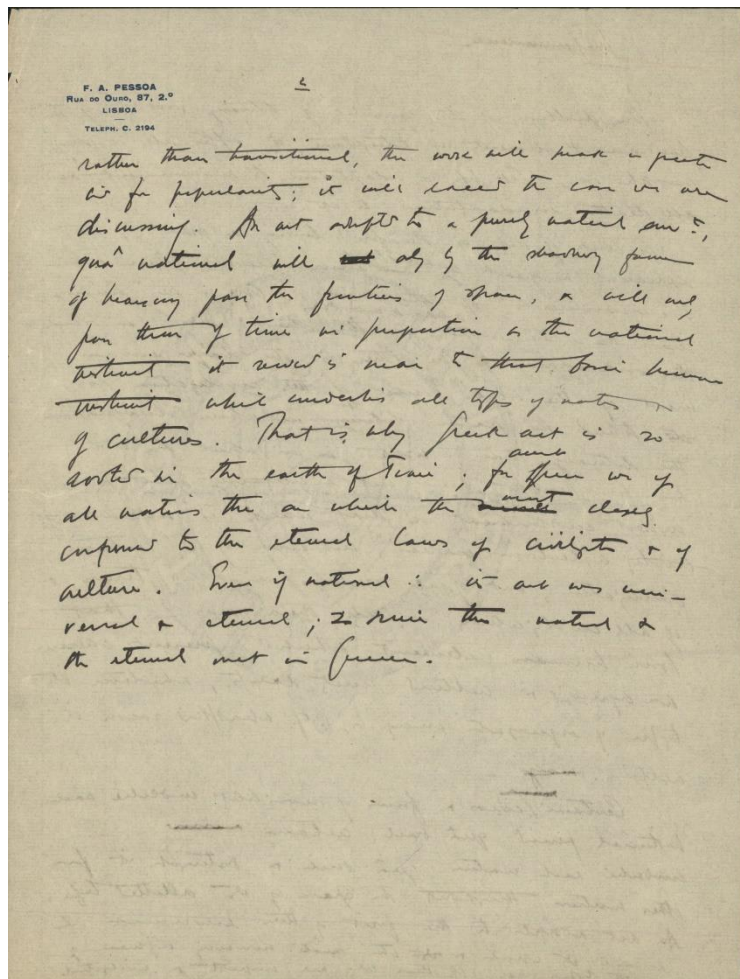 F. A. PESSOA
RUA DO OURO, 87, 2.º
LISBOA
TELEPH. C. 2194
2
rather than transitional, the work will make a greater
for popularity; it will exceed the case we are
discussing. An art adapted to a purely national
quâ national will only by the
of pass the frontiers of space, & will only
pass those of time in proportion as the national
instinct it is near to that basic human
instinct which underlies all types of nations &
of cultures. That is why Greek art is so
rooted in the earth of Time; for ancient Greece was of
all nations the one which the most closely
conformed to the eternal laws of civilization & of
culture. Even if national its art was uni-
versal & eternal; since the national &
the eternal met in Greece.